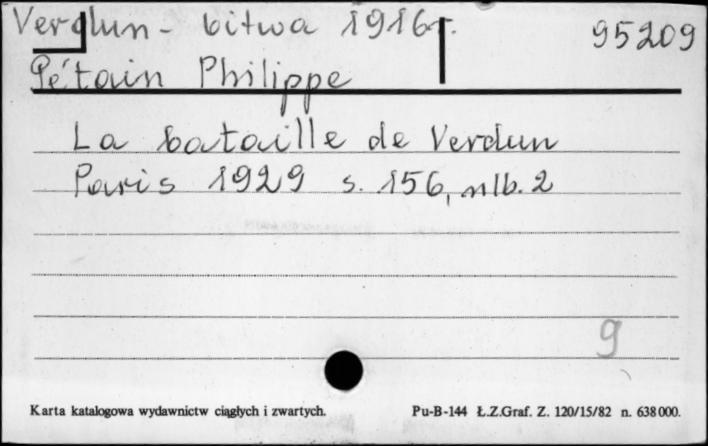 Verdun - bitwa 1916r.
95209
Pétain Philippe
La bataille de Verdun
Paris 1929 s. 156, nlb. 2
9
Karta katalogowa wydawnictw ciągłych i zwartych.
Pu-B-144 Ł.Z.Graf. Z. 120/15/82 n. 638000.